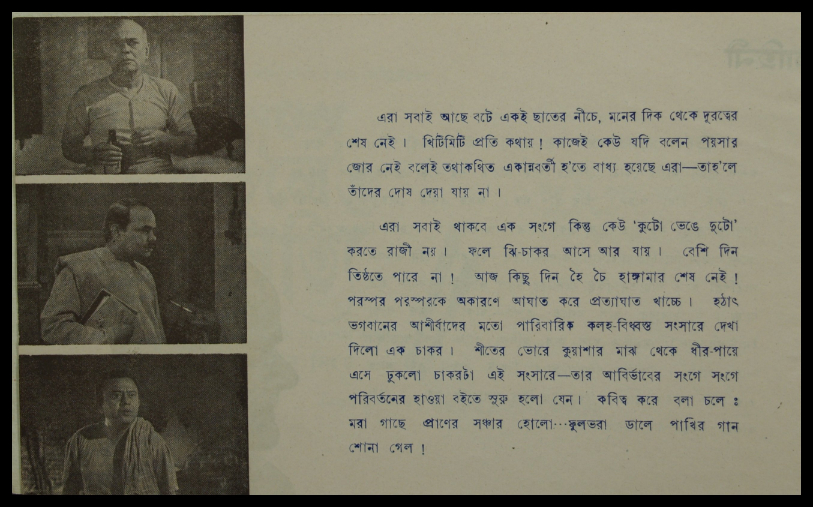 এরা সবাই আছে বটে একই ছাতের নীচে, মনের দিক থেকে দূরত্বের
শেষ নেই। খিটিমিটি প্রতি কথায়! কাজেই কেউ যদি বলেন পয়সার
জোর নেই বলেই তথাকথিত একান্নবর্তী হ'তে বাধ্য হয়েছে এরা—তাহ'লে
তাঁদের দোষ দেয়া যায় না।
এরা সবাই থাকবে এক সংগে কিন্তু কেউ 'কুটো ভেঙে দুটো'
করতে রাজী নয়। ফলে ঝি-চাকর আসে আর যায়। বেশি দিন
তিষ্ঠতে পারে না! আজ কিছু দিন হৈ চৈ হাঙ্গামার শেষ নেই!
পরস্পর পরস্পরকে অকারণে আঘাত করে প্রত্যাঘাত খাচ্ছে। হঠাৎ
ভগবানের আশীর্বাদের মতো পারিবারিক কলহ-বিধ্বস্ত সংসারে দেখা
দিলো এক চাকর। শীতের ভোরে কুয়াশার মাঝ থেকে ধীর-পায়ে
এসে ঢুকলো চাকরটা এই সংসারে—তার আবির্ভাবের সংগে সংগে
পরিবর্তনের হাওয়া বইতে সুরু হলো যেন। কবিত্ব করে বলা চলে :
মরা গাছে প্রাণের সঞ্চার হোলো···ফুলভরা ডালে পাখির গান
শোনা গেল!